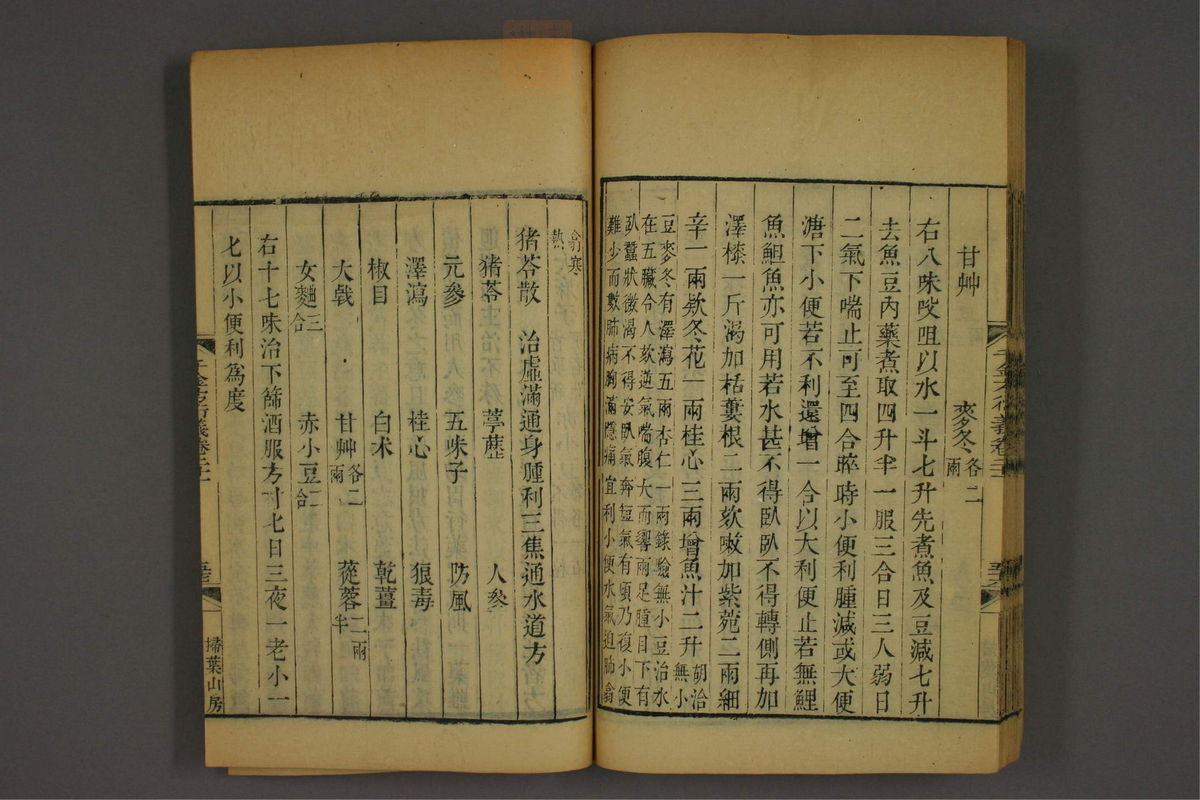 甘艸　麥冬各二兩
右八味㕮咀以水一斗七升先煮魚及豆減七升
去魚豆內藥煮取四升半一服三合日三人弱日
二氣下喘止可至四合晬時小便利腫減或大便
溏下小便若不利還增一合以大利便止若無鯉
魚鮰魚亦可用若水甚不得臥臥不得轉側再加
澤漆一斤渴加栝蔞根二兩欬嗽加紫菀二兩細
辛一兩欵冬花一兩桂心三兩增魚汁二升胡洽無小
豆麥冬有澤瀉五兩杏仁一兩錄驗無小豆治水
在五臟令人欬逆氣喘腹大而響兩足腫目下有
臥蠶狀微渴不得安臥氣奔短氣有頃乃復小便
難少而數肺病胸滿隱痛宜利小便水氣迫肺翕
翕寒
熱
猪苓散　治虛滿通身腫利三焦通水道方
猪苓　葶藶　人參
元參　五味子　防風
澤瀉　桂心　狼毒
椒目　白朮　乾薑
大戟　甘艸各二兩　蓯蓉二兩半
女麯三合　赤小豆二合
右十七味治下篩酒服方寸七日三夜一老小一
七以小便利爲度
掃葉山房